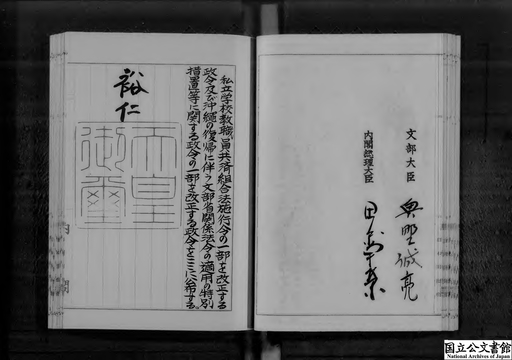 私立学校教職員共済組合法施行令の一部を改正する
政令及び沖縄の復帰に伴う文部省関係法令の適用の特別
措置等に関する政令の一部を改正する政令をここに公布する。
裕仁
天皇
御璽
文部大臣 奥野誠亮
内閣総理大臣 田中角栄
国立公文書館
National Archives of Japan